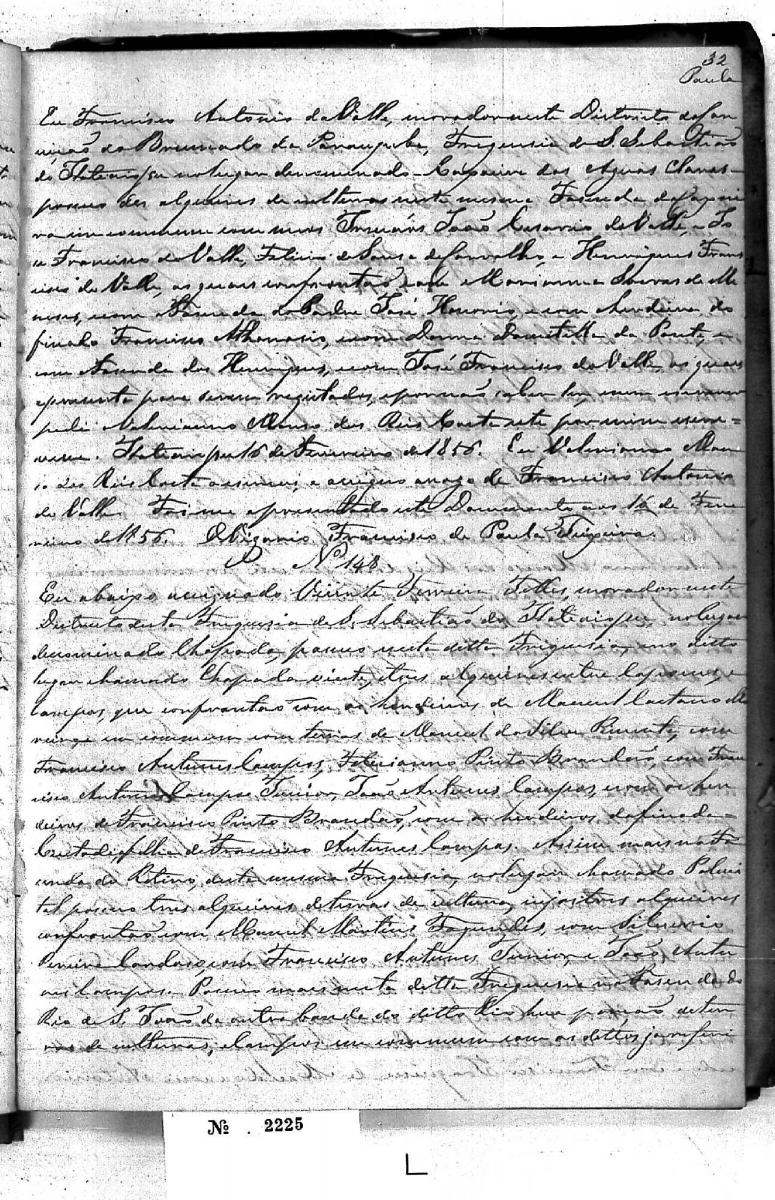 32
Paula
Eu Francisco Antonio do Valle, morador neste Districto de
do Brumado da Paraupeba, Freguesia de S. Sebastiaõ
do Itatiaiussu no lugar denominado Capoeira das Agoas Claras
possuo des alqueires de culturas neste mesma Fasenda da Capoei
ra in commum com meos Irmaõs Joaõ do Valle, e Jo
se Francisco do Valle, Felicio de Sousa de Carvalho, e Henriques Fran
cisco do Valle, as quaes confrontaõ com Marianna de Me
neses, com a Fasenda do Padre José Honorio, e com herdeiros do
finado Francisco Athanasio, e com Donna da Ponte, e
com a Fasenda dos Henriques, e com José Francisco do Valle, as quaes
apresenta para serem registados, e por naõ saber ler, nem escrever
pedi a Valeriano dos Reis Costa este por mim escre-
vesse. 16 de Fevereiro de 1856. Eu Valeriano
dos Reis Costa assino, a rogo de Francisco Antonio
do Valle. Foi me apresentado este Documento aos 16 de Feve
reiro de 1856. O Vigario Francisco de Paula Teixeira.
Nº 148
Eu abaixo assignado Vicente Ferreira Telles, morador neste
Districto desta Freguesia de S. Sebastiaõ do Itatiaiussu, no lugar
denominado Chapada, possuo nesta ditta Freguesia, e no ditto
lugar chamado Chapada vinte, e tres alqueires entre capoeiras, e
campos, que confrontaõ com os herdeiros de Manuel Caetano
in commum com terras de Manuel da Silva, com
Francisco Antunes Campos, Feliciano Pinto Brandaõ, com Fran
cisco Antunes Campos Junior, Joaõ Antunes Campos, e com os her
deiros de Francisco Pinto Brandaõ, com os herdeiros da finada
filha de Francisco Antunes Campos. Assim mais na Fa
senda do Retiro, desta mesma Freguesia, no lugar chamado Palmi
tal possuo tres alqueires de terras de cultura, cujos tres alqueires
confrontaõ com Manuel Martins Fagundes, com Silverio
Pereira, com Francisco Antunes Junior, e Joaõ Antu
nes Campos. Possuo mais nesta ditta Freguesia na Fasenda do
Rio de S. Joaõ da outra banda do ditto Rio huma porçaõ de ter
ras de culturas, e campos in commum com os dittos
Nº 2225
L